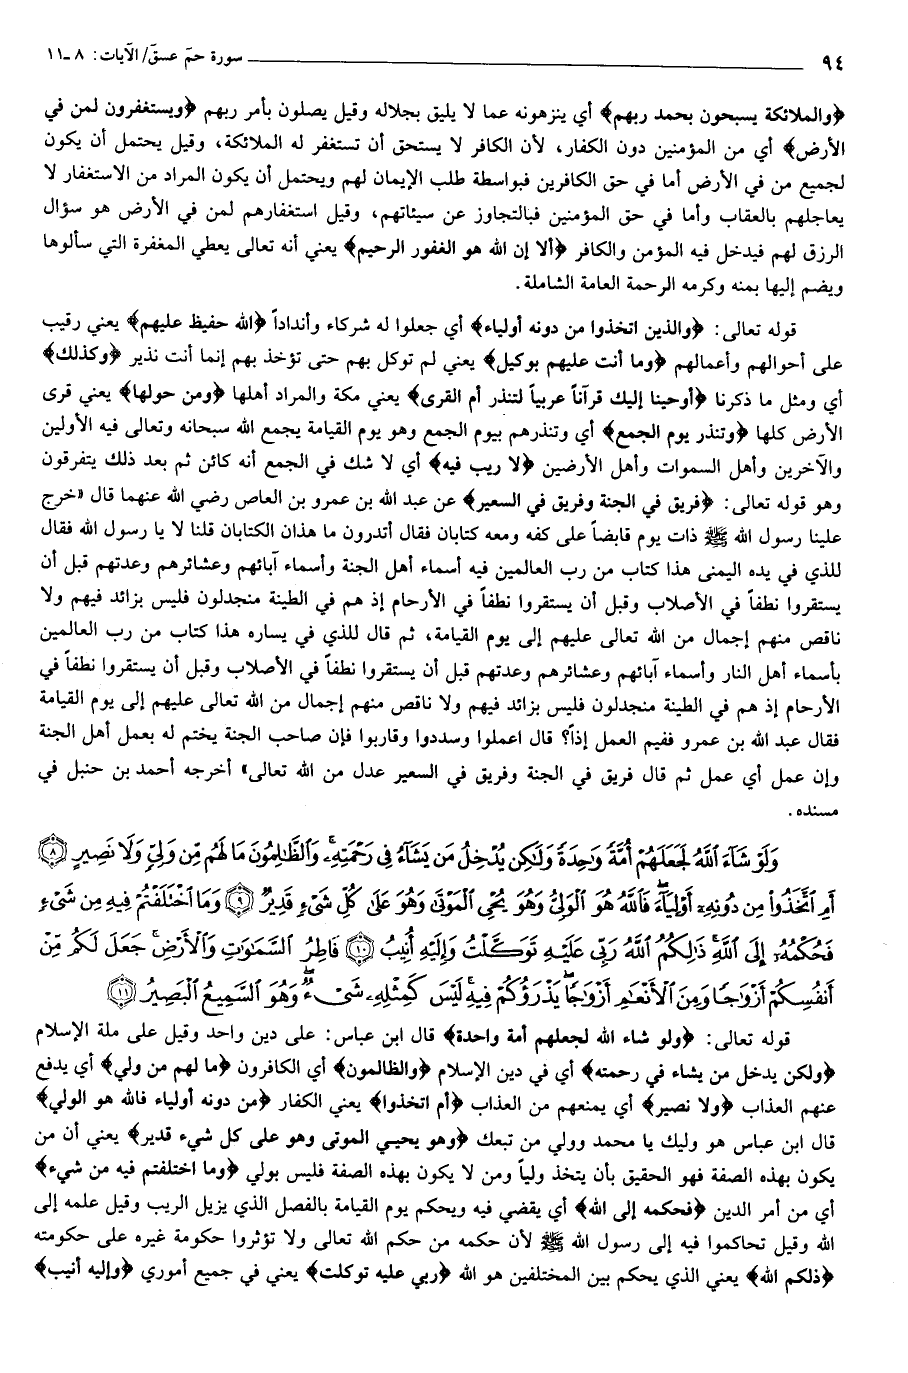 ٩٤ سورة حمَ عسقَ/ الآيات: ٨ ـ ١١
﴿والملائكة يسبحون بحمد ربهم﴾ أي ينزهونه عما لا يليق بجلاله وقيل يصلون بأمر ربهم ﴿ويستغفرون لمن في
الأرض﴾ أي من المؤمنين دون الكفار، لأن الكافر لا يستحق أن تستغفر له الملائكة، وقيل يحتمل أن يكون
لجميع من في الأرض أما في حق الكافرين فبواسطة طلب الإيمان لهم ويحتمل أن يكون المراد من الاستغفار لا
يعاجلهم بالعقاب وأما في حق المؤمنين فبالتجاوز عن سيئاتهم، وقيل استغفارهم لمن في الأرض هو سؤال
الرزق لهم فيدخل فيه المؤمن والكافر ﴿ألا إن الله هو الغفور الرحيم﴾ يعني أنه تعالى يعطي المغفرة التي سألوها
ويضم إليها بمنه وكرمه الرحمة العامة الشاملة.
قوله تعالى: ﴿والذين اتخذوا من دونه أولياء﴾ أي جعلوا له شركاء وأنداداً ﴿الله حفيظ عليهم﴾ يعني رقيب
على أحوالهم وأعمالهم ﴿وما أنت عليهم بوكيل﴾ يعني لم توكل بهم حتى تؤخذ بهم إنما أنت نذير ﴿وكذلك﴾
أي ومثل ما ذكرنا ﴿أوحينا إليك قرآناً عربياً لتنذر أم القرى﴾ يعني مكة والمراد أهلها ﴿ومن حولها﴾ يعني قرى
الأرض كلها ﴿وتنذر يوم الجمع﴾ أي وتنذرهم بيوم الجمع وهو يوم القيامة يجمع الله سبحانه وتعالى فيه الأولين
والآخرين وأهل السموات وأهل الأرضين ﴿لا ريب فيه﴾ أي لا شك في الجمع أنه كائن ثم بعد ذلك يتفرقون
وهو قوله تعالى: ﴿فريق في الجنة وفريق في السعير﴾ عن عبد الله بن عمرو بن العاص رضي الله عنهما قال «خرج
علينا رسول الله ﷺ ذات يوم قابضاً على كفه ومعه كتابان فقال أتدرون ما هذان الكتابان قلنا لا يا رسول الله فقال
للذي في يده اليمنى هذا كتاب من رب العالمين فيه أسماء أهل الجنة وأسماء آبائهم وعشائرهم وعدتهم قبل أن
يستقروا نطفاً في الأصلاب وقبل أن يستقروا نطفاً في الأرحام إذ هم في الطينة منجدلون فليس بزائد فيهم ولا
ناقص منهم إجمال من الله تعالى عليهم إلى يوم القيامة، ثم قال للذي في يساره هذا كتاب من رب العالمين
بأسماء أهل النار وأسماء آبائهم وعشائرهم وعدتهم قبل أن يستقروا نطفاً في الأصلاب وقبل أن يستقروا نطفاً في
الأرحام إذ هم في الطينة منجدلون فليس بزائد فيهم ولا ناقص منهم إجمال من الله تعالى عليهم إلى يوم القيامة
فقال عبد الله بن عمرو ففيم العمل إذاً؟ قال اعملوا وسددوا وقاربوا فإن صاحب الجنة يختم له بعمل أهل الجنة
وإن عمل أي عمل ثم قال فريق في الجنة وفريق في السعير عدل من الله تعالى» أخرجه أحمد بن حنبل في
مسنده.
وَلَوْ شَآءَ ٱللَّهُ لَجَعَلَهُمْ أُمَّةً وَٰحِدَةً وَلَٰكِن يُدْخِلُ مَن يَشَآءُ فِى رَحْمَتِهِۦ ۚ وَٱلظَّٰلِمُونَ مَا لَهُم مِّن وَلِىٍّ وَلَا نَصِيرٍ ﴿٨﴾
أَمِ ٱتَّخَذُوا۟ مِن دُونِهِۦٓ أَوْلِيَآءَ ۖ فَٱللَّهُ هُوَ ٱلْوَلِىُّ وَهُوَ يُحْىِ ٱلْمَوْتَىٰ وَهُوَ عَلَىٰ كُلِّ شَىْءٍ قَدِيرٌ ﴿٩﴾ وَمَا ٱخْتَلَفْتُمْ فِيهِ مِن شَىْءٍ
فَحُكْمُهُۥٓ إِلَى ٱللَّهِ ۚ ذَٰلِكُمُ ٱللَّهُ رَبِّى عَلَيْهِ تَوَكَّلْتُ وَإِلَيْهِ أُنِيبُ ﴿١٠﴾ فَاطِرُ ٱلسَّمَٰوَٰتِ وَٱلْأَرْضِ ۚ جَعَلَ لَكُم مِّنْ
أَنفُسِكُمْ أَزْوَٰجًا وَمِنَ ٱلْأَنْعَٰمِ أَزْوَٰجًا ۖ يَذْرَؤُكُمْ فِيهِ ۚ لَيْسَ كَمِثْلِهِۦ شَىْءٌ ۖ وَهُوَ ٱلسَّمِيعُ ٱلْبَصِيرُ ﴿١١﴾
قوله تعالى: ﴿ولو شاء الله لجعلهم أمة واحدة﴾ قال ابن عباس: على دين واحد وقيل على ملة الإسلام
﴿ولكن يدخل من يشاء في رحمته﴾ أي في دين الإسلام ﴿والظالمون﴾ أي الكافرون ﴿ما لهم من ولي﴾ أي يدفع
عنهم العذاب ﴿ولا نصير﴾ أي يمنعهم من العذاب ﴿أم اتخذوا﴾ يعني الكفار ﴿من دونه أولياء فالله هو الولي﴾
قال ابن عباس هو وليك يا محمد وولي من تبعك ﴿وهو يحيي الموتى وهو على كل شيء قدير﴾ يعني أن من
يكون بهذه الصفة فهو الحقيق بأن يتخذ ولياً ومن لا يكون بهذه الصفة فليس بولي ﴿وما اختلفتم فيه من شيء﴾
أي من أمر الدين ﴿فحكمه إلى الله﴾ أي يقضي فيه ويحكم يوم القيامة بالفصل الذي يزيل الريب وقيل علمه إلى
الله وقيل تحاكموا فيه إلى رسول الله ﷺ لأن حكمه من حكم الله تعالى ولا تؤثروا حكومة غيره على حكومته
﴿ذلكم الله﴾ يعني الذي يحكم بين المختلفين هو الله ﴿ربي عليه توكلت﴾ يعني في جميع أموري ﴿وإليه أنيب﴾